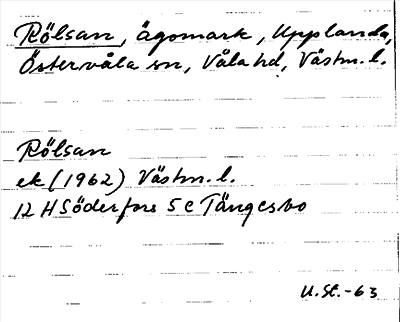 Rölsan, ägomark, Upplanda,
Östervåla sn, Våla hd, Västm. l.
Rölsan
ek (1962) Västm. l.
12 H Söderfors 5 c Tängesbo
U. St. -63